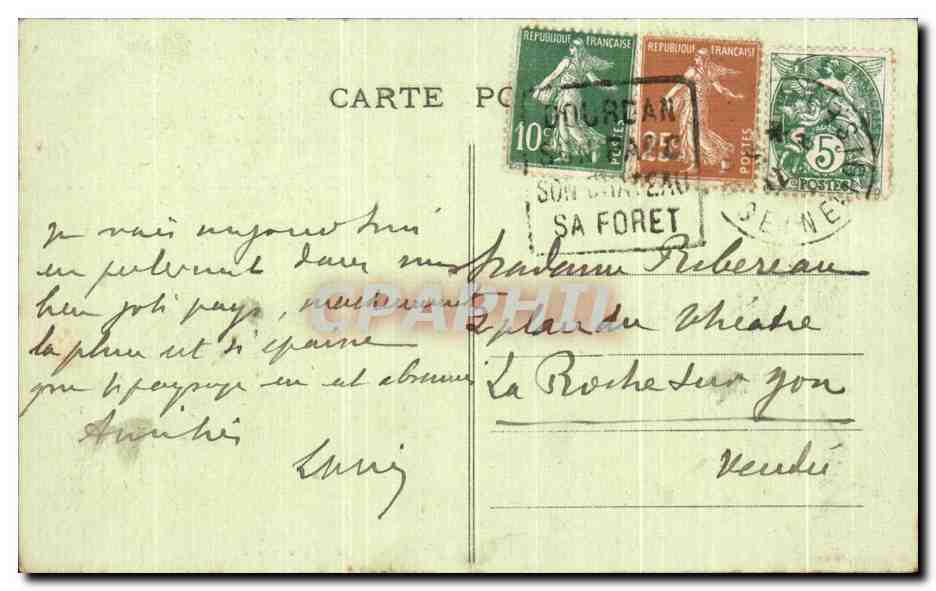 CARTE PO
REPUBLIQUE FRANÇAISE
10c POSTES
REPUBLIQUE FRANÇAISE
25c POSTES
5c POSTES
DOURDAN
SON
SON CHATEAU
SA FORET
je vais aujourd'hui
en dans
bien joli pays,
la pluie est si épaisse
que le paysage en est
Amitiés
Madame Ribereau
place du théatre
La Roche sur yon
Vendée
CPAPHIL